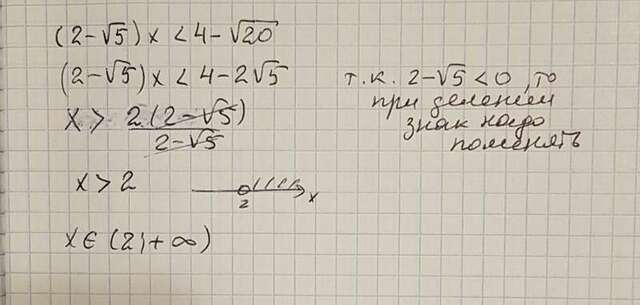 (2-√5)x < 4-√20
(2-√5)x < 4-2√5
т.к. 2-√5 < 0, то
при делением
знак надо
поменять
x > 2(2-√5)
2-√5
x > 2
2
x
x ∈ (2;+∞)